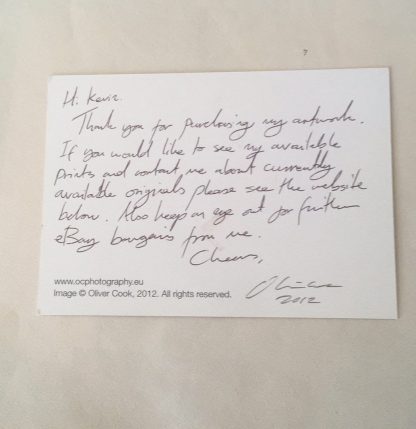 Hi Kevin.
Thank you for purchasing my artwork.
If you would like to see my available
prints and contact me about currently
available originals please see the website
below. Also keep an eye out for further
eBay bargains from me.
Cheers,
www.ocphotography.eu
Image © Oliver Cook, 2012. All rights reserved.
2012